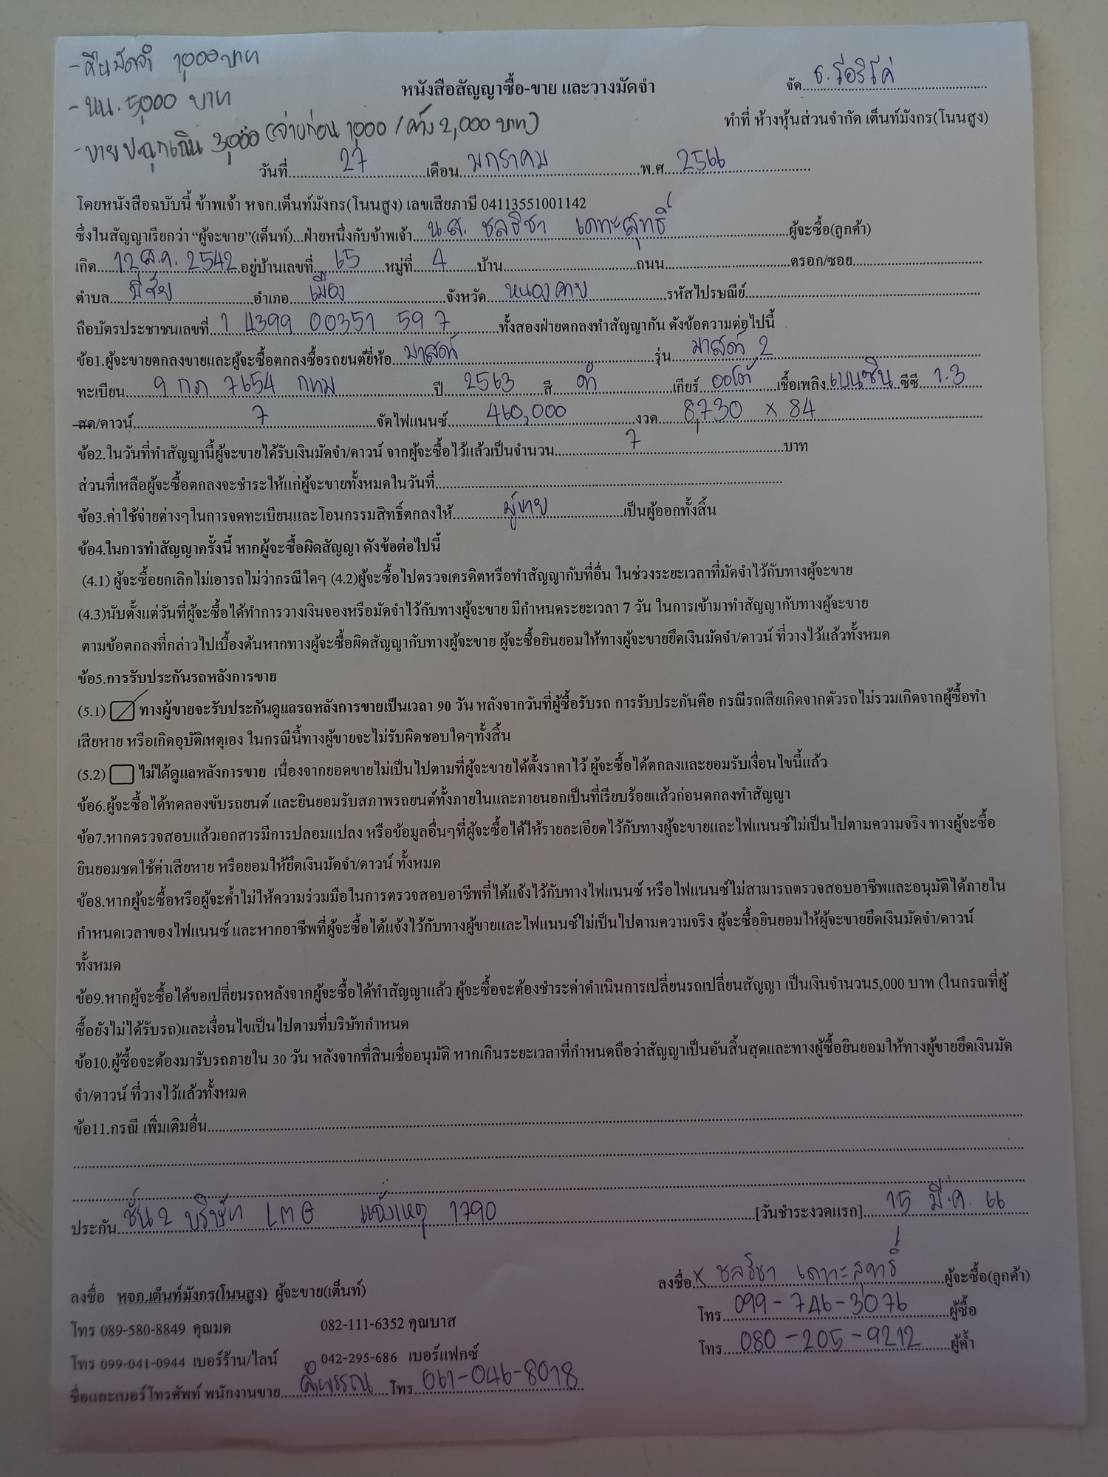 - คืนมัดจำ 1,000 บาท
- นน. 5,000 บาท
- ขายปลุกเงิน 3,000 (จ่ายก่อน 1,000 / ค้าง 2,000 บาท)
หนังสือสัญญาซื้อ-ขาย และวางมัดจำ
จัด ธ.
ทำที่ ห้างหุ้นส่วนจำกัด เต็นท์มังกร(โนนสูง)
วันที่ 27 เดือน มกราคม พ.ศ. 2566
โดยหนังสือฉบับนี้ ข้าพเจ้า หจก.เต็นท์มังกร(โนนสูง) เลขเสียภาษี 04113551001142
ซึ่งในสัญญาเรียกว่า "ผู้จะขาย"(เต็นท์)...ฝ่ายหนึ่งกับข้าพเจ้า น.ส. ชลธิชา เดาะสุทธิ์ ผู้จะซื้อ(ลูกค้า)
เกิด 12 ส.ค. 2542 อยู่บ้านเลขที่ 65 หมู่ที่ 4 บ้าน ถนน ตรอก/ซอย
ตำบล มีชัย อำเภอ เมือง จังหวัด หนองคาย รหัสไปรษณีย์
ถือบัตรประชาชนเลขที่ 1 4399 00351 59 7 ทั้งสองฝ่ายตกลงทำสัญญากัน ดังข้อความต่อไปนี้
ข้อ1.ผู้จะขายตกลงขายและผู้จะซื้อตกลงซื้อรถยนต์ยี่ห้อ มาสด้า รุ่น มาสด้า 2
ทะเบียน 9 กภ 7654 กทม ปี 2563 สี ดำ เกียร์ ออโต้ เชื้อเพลิง เบนซิน ซีซี 1.3
สด/ดาวน์ 7 จัดไฟแนนซ์ 460,000 งวด 8,730 x 84
ข้อ2.ในวันที่ทำสัญญานี้ผู้จะขายได้รับเงินมัดจำ/ดาวน์ จากผู้จะซื้อไว้แล้วเป็นจำนวน 7 บาท
ส่วนที่เหลือผู้จะซื้อตกลงจะชำระให้แก่ผู้จะขายทั้งหมดในวันที่
ข้อ3.ค่าใช้จ่ายต่างๆในการจดทะเบียนและโอนกรรมสิทธิ์ตกลงให้ ผู้ขาย เป็นผู้ออกทั้งสิ้น
ข้อ4.ในการทำสัญญาครั้งนี้ หากผู้จะซื้อผิดสัญญา ดังข้อต่อไปนี้
(4.1) ผู้จะซื้อยกเลิกไม่เอารถไม่ว่ากรณีใดๆ (4.2)ผู้จะซื้อไปตรวจเครดิตหรือทำสัญญากับที่อื่น ในช่วงระยะเวลาที่มัดจำไว้กับทางผู้จะขาย
(4.3)นับตั้งแต่วันที่ผู้จะซื้อได้ทำการวางเงินจองหรือมัดจำไว้กับทางผู้จะขาย มีกำหนดระยะเวลา 7 วัน ในการเข้ามาทำสัญญากับทางผู้จะขาย
ตามข้อตกลงที่กล่าวไปเบื้องต้นหากทางผู้จะซื้อผิดสัญญากับทางผู้จะขาย ผู้จะซื้อยินยอมให้ทางผู้จะขายยึดเงินมัดจำ/ดาวน์ ที่วางไว้แล้วทั้งหมด
ข้อ5.การรับประกันรถหลังการขาย
(5.1) ทางผู้ขายจะรับประกันดูแลรถหลังการขายเป็นเวลา 90 วัน หลังจากวันที่ผู้ซื้อรับรถ การรับประกันคือ กรณีรถเสียเกิดจากตัวรถ ไม่รวมเกิดจากผู้ซื้อทำ
เสียหาย หรือเกิดอุบัติเหตุเอง ในกรณีนี้ทางผู้ขายจะไม่รับผิดชอบใดๆทั้งสิ้น
(5.2) ไม่ได้ดูแลหลังการขาย เนื่องจากยอดขายไม่เป็นไปตามที่ผู้จะขายได้ตั้งราคาไว้ ผู้จะซื้อได้ตกลงและยอมรับเงื่อนไขนี้แล้ว
ข้อ6.ผู้จะซื้อได้ทดลองขับรถยนต์ และยินยอมรับสภาพรถยนต์ทั้งภายในและภายนอกเป็นที่เรียบร้อยแล้วก่อนตกลงทำสัญญา
ข้อ7.หากตรวจสอบแล้วเอกสารมีการปลอมแปลง หรือข้อมูลอื่นๆที่ผู้จะซื้อได้ให้รายละเอียดไว้กับทางผู้จะขายและไฟแนนซ์ไม่เป็นไปตามความจริง ทางผู้จะซื้อ
ยินยอมชดใช้ค่าเสียหาย หรือยอมให้ยึดเงินมัดจำ/ดาวน์ ทั้งหมด
ข้อ8.หากผู้จะซื้อหรือผู้จะค้ำไม่ให้ความร่วมมือในการตรวจสอบอาชีพที่ได้แจ้งไว้กับทางไฟแนนซ์ หรือไฟแนนซ์ไม่สามารถตรวจสอบอาชีพและอนุมัติได้ภายใน
กำหนดเวลาของไฟแนนซ์ และหากอาชีพที่ผู้จะซื้อได้แจ้งไว้กับทางผู้ขายและไฟแนนซ์ไม่เป็นไปตามความจริง ผู้จะซื้อยินยอมให้ผู้จะขายยึดเงินมัดจำ/ดาวน์
ทั้งหมด
ข้อ9.หากผู้จะซื้อได้ขอเปลี่ยนรถหลังจากผู้จะซื้อได้ทำสัญญาแล้ว ผู้จะซื้อจะต้องชำระค่าดำเนินการเปลี่ยนรถเปลี่ยนสัญญา เป็นเงินจำนวน5,000 บาท (ในกรณีที่ผู้
ซื้อยังไม่ได้รับรถ)และเงื่อนไขเป็นไปตามที่บริษัทกำหนด
ข้อ10.ผู้ซื้อจะต้องมารับรถภายใน 30 วัน หลังจากที่สินเชื่ออนุมัติ หากเกินระยะเวลาที่กำหนดถือว่าสัญญาเป็นอันสิ้นสุดและทางผู้ซื้อยินยอมให้ทางผู้ขายยึดเงินมัด
จำ/ดาวน์ ที่วางไว้แล้วทั้งหมด
ข้อ11.กรณี เพิ่มเติมอื่น
ประกัน ชั้น 2 บริษัท LMG แจ้งเหตุ 1790 [วันชำระงวดแรก] 15 มี.ค. 66
ลงชื่อ หจก.เต็นท์มังกร(โนนสูง) ผู้จะขาย(เต็นท์)
ลงชื่อ x ชลธิชา เดาะสุทธิ์ ผู้จะซื้อ(ลูกค้า)
โทร 089-580-8849 คุณมด 082-111-6352 คุณบาส
โทร 099-746-3076 ผู้ซื้อ
โทร 099-041-0944 เบอร์ร้าน/ไลน์ 042-295-686 เบอร์แฟกซ์
โทร 080-205-9212 ผู้ค้ำ
ชื่อและเบอร์โทรศัพท์ พนักงานขาย คำพรรณ โทร 061-046-8018